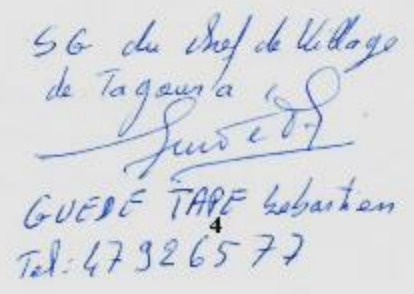 SG du chef de Village
de Tagoura
GUEDE TAPE Sebastien
4
Tel: 47 92 65 77